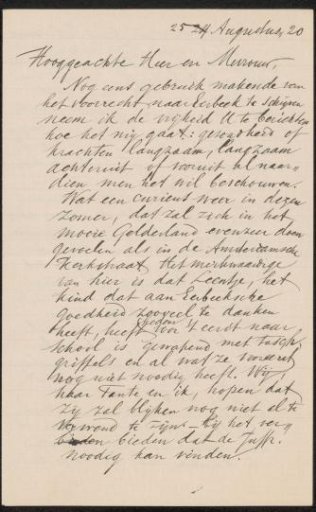 25 24 Augustus, 20
Hooggeachte Heer en Mevrouw,
Nog eens gebruik makende van
het voorrecht naar Eerbeek te schrijven
neem ik de vrijheid U te berichten
hoe het mij gaat: gezondheid of
krachten langzaam, langzaam
achteruit of vooruit al naar-
dien men het wil beschouwen.
Wat een curieus weer in dezen
zomer, dat zal zich in het
mooie Gelderland evenzeer doen
gevoelen als in de Amsterdamsche
Kerkstraat. Het merkwaardige
van hier is dat Leentje, het
kind dat aan Eerbeeksche
goedheid zooveel te danken
heeft, heden voor 't eerst naar
school is gewapend met
griffels en al wat ze vooreerst
nog niet noodig heeft. Wij,
haar Tante en ik, hopen dat
zij zal blijken nog niet al te
te zijn bij het ver-
bieden dat de Juffr.
noodig kan vinden.